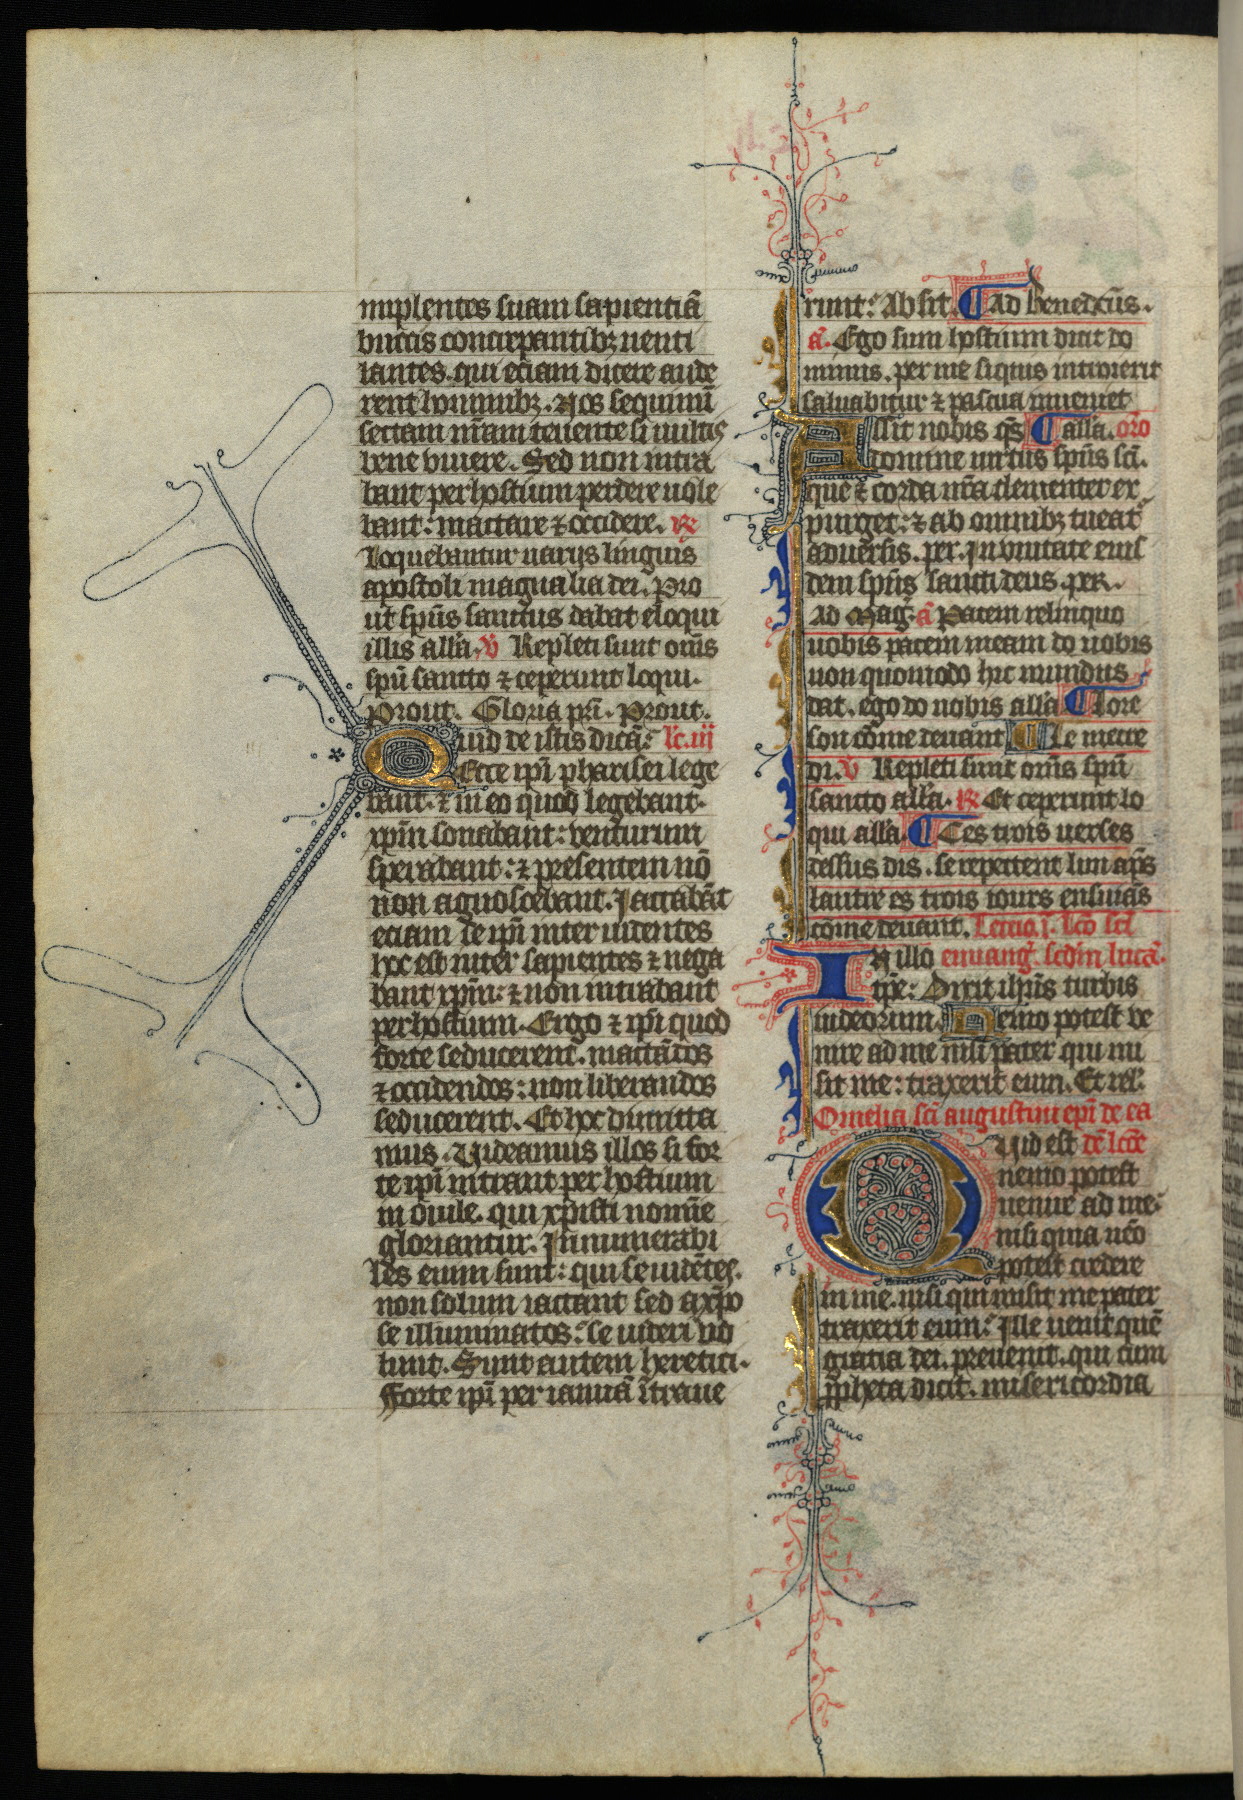 mplentes suam sapientiã
buccis concrepantibꝫ uenti
lantes. qui eciam dicere aude
rent hominibꝫ. Nos sequimĩ
sectam nr̃am tenente si uultis
bene viuere. Sed non intra
bant per hostium perdere uole
bant: mactare ⁊ occidere. R̃
Loquebantur uarijs linguis
apostoli magnalia dei. Pro
ut sp̃us sanctus dabat eloqui
illis all'a. v̄ Repleti sunt om̃s
sp̃u sancto ⁊ ceperunt loqui.
Prout. Gloria pr̃i. Prout.
uid de istis dicã? lc̃. iij
Ecce ip̃i pharisei lege
bant. ⁊ in eo quod legebant.
xp̃m sonabant: venturum
sperabant: ⁊ presentem nõ
non agnoscebant. Jactabãt
eciam se ip̃i inter uidentes
hoc est inter sapientes ⁊ nega
bant xp̃m: ⁊ non intrabant
per hostium. Ergo ⁊ ip̃i quod
forte seducerent. mactãdos
⁊ occidendos: non liberandos
seducerent. Et hoc dimitta
mus. Uideamus illos si for
te ip̃i intrant per hostium
in ouile. qui xp̃isti nomĩe
gloriantur. Jnnumerabi
les enim sunt: qui se uidẽtes.
non solum iactant sed a xp̃o
se illuminatos: se uideri uo
lunt. Sunt autem heretici.
Forte ip̃i per ianuã ĩtraue
runt? Absit. Ad benedic̃us.
ã. Ego sum hostium dicit do
minus. per me siquis introierit
saluabitur ⁊ pascua inueniet
Assit nobis q̃s all'a. orõ
domine uirtus sp̃us sc̃i.
que ⁊ corda nr̃a clementer ex
purget: ⁊ ab omnibꝫ tueat'
aduersis. per. Jn vnitate eius
dem sp̃us sancti deus. per.
Ad Mag. ã Pacem relinquo
uobis pacem meam do uobis
non quomodo hic mundus
dat. ego do uobis all'a Lore
son cõme deuant Le mecre
di. v̄ Repleti sunt om̃s sp̃u
sancto all'a. R̃ Et ceperunt lo
qui all'a. Ces trois uerses
dessus dis. se repettent lun ap̃s
lautre es trois iours ensuiãs
cõme deuant. Lectio. j. lc̃o sc̃i
In illo euuang'. scd̃m lucã.
tp̃e: Dixit ih̃us turbis
iudeorum. Nemo potest ve
nire ad me nisi pater qui mi
sit me: traxerit eum. Et rel'.
Omelia sc̃i augustini ep̃i de ea
Quid est dẽ lcc̃e
nemo potest
uenire ad me:
nisi quia nẽo
potest credere
in me. nisi qui misit me pater
traxerit eum? Jlle uenit quẽ
gratia dei. preuenit. qui cum
p̃pheta dicit. misericordia